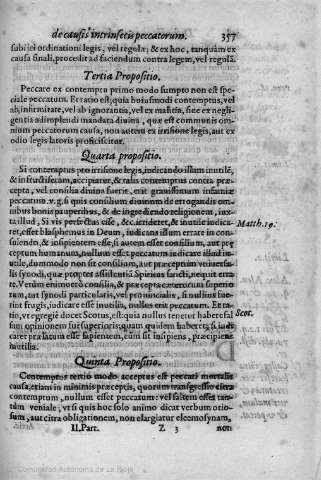 de causis intrinsecis peccatorum. 357
subijci ordinationi legis, vel regulæ; & ex hoc, tanquàm ex
causa finali, procedit ad faciendum contra legem, vel regulã.
Tertia Propositio.
Peccare ex contemptu primo modo sumpto non est spe-
ciale peccatum. Et ratio est, quia huiusmodi contemptus, vel
ab infirmitate, vel ab ignorantia, vel ex malitia, siue ex negli-
gentia adimplendi mandata diuina, quæ est communis om-
nium peccatorum causa, non autem ex irrisione legis, aut ex
odio legis latoris proficiscitur.
Quarta propositio.
Si contemptus pro irrisione legis, iudicando illam inutilẽ,
& infructiferam, accipiatur, & talis contemptus contra præ-
cepta, vel consilia diuina fuerit, erit grauissimum infamiæ
peccatum v. g. si quis consilium diuinum de erogandis om-
nibus bonis pauperibus, & de ingrediendo religionem, iux-
ta illud, Si vis perfectus esse, &c. irrideret, & inutile iudica- Matth. 19.
ret, esset blasphemus in Deum, iudicans illum errare in con-
sulendo, & insipientem esse, si autem esset consilium, aut præ
ceptum humanum, nullum esset peccatum iudicare illud in-
utile, dummodo non sit consilium, aut præceptum vniuersa-
lis synodi, quæ propter assistentiã Spiritus sancti, nequit erra
re. Verùm enimuerò consilia, & præcepta cæterorum superio
rum, aut synodi particularis, vel prouincialis, si nullius fue-
rint frugis, iudicare esse inutilia, nullus erit peccatum. Et ra-
tio, vt egregiè docet Scotus, est: quia nullus tenetur habere fal Scot.
sam opinionem sui superioris, quam quidem haberet, si iudi
caret prælatum esse sapientem, cùm sit insipiens, præcipiens
inutilia.
Quinta Propositio.
Contemptus tertio modo acceptus est peccati mortalis
causa, etiam in minimis præceptis, quorum transgressio citra
contemptum, nullum esset peccatum: vel saltem esset tan-
tùm veniale, vt si quis hoc solo animo dicat verbum otio-
sum, aut citra obligationem, non elargiatur eleemosynam,
II. Part. Z 3 non
Comunidad Autónoma de La Rioja